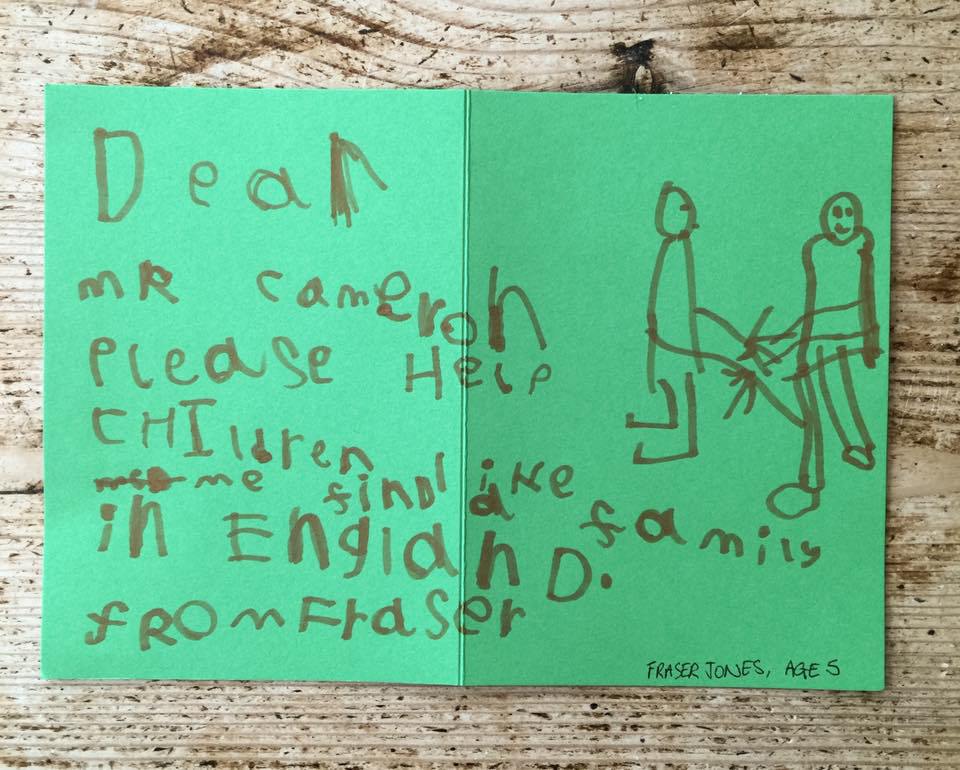 Dear
mR cameron
Please Help
CHIldren like
me find a family
in EnglanD.
fROm Fraser
FRASER JONES, AGE 5